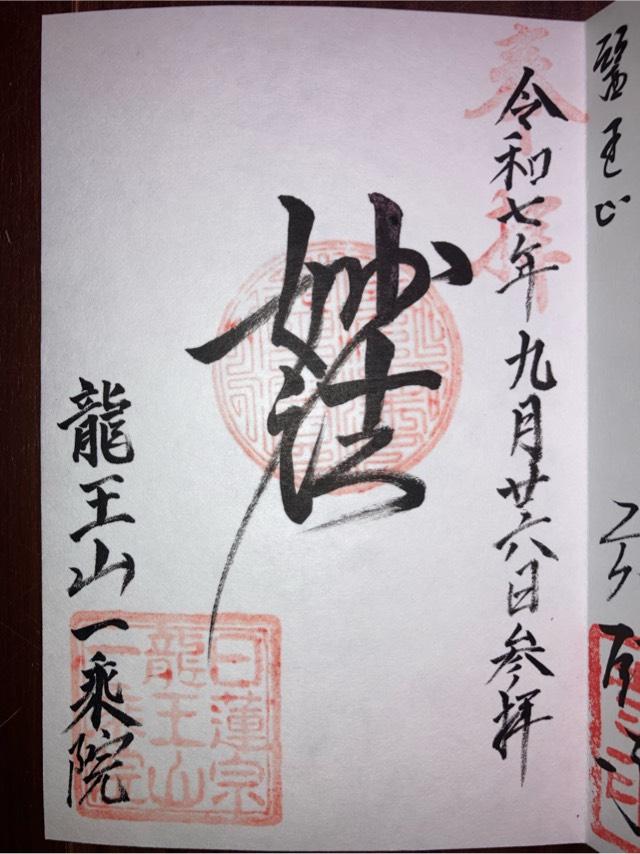 奉拝
令和七年九月廿六日参拝
妙法
龍王山一乗院
日蓮宗
龍王山
一乗院
醫王山